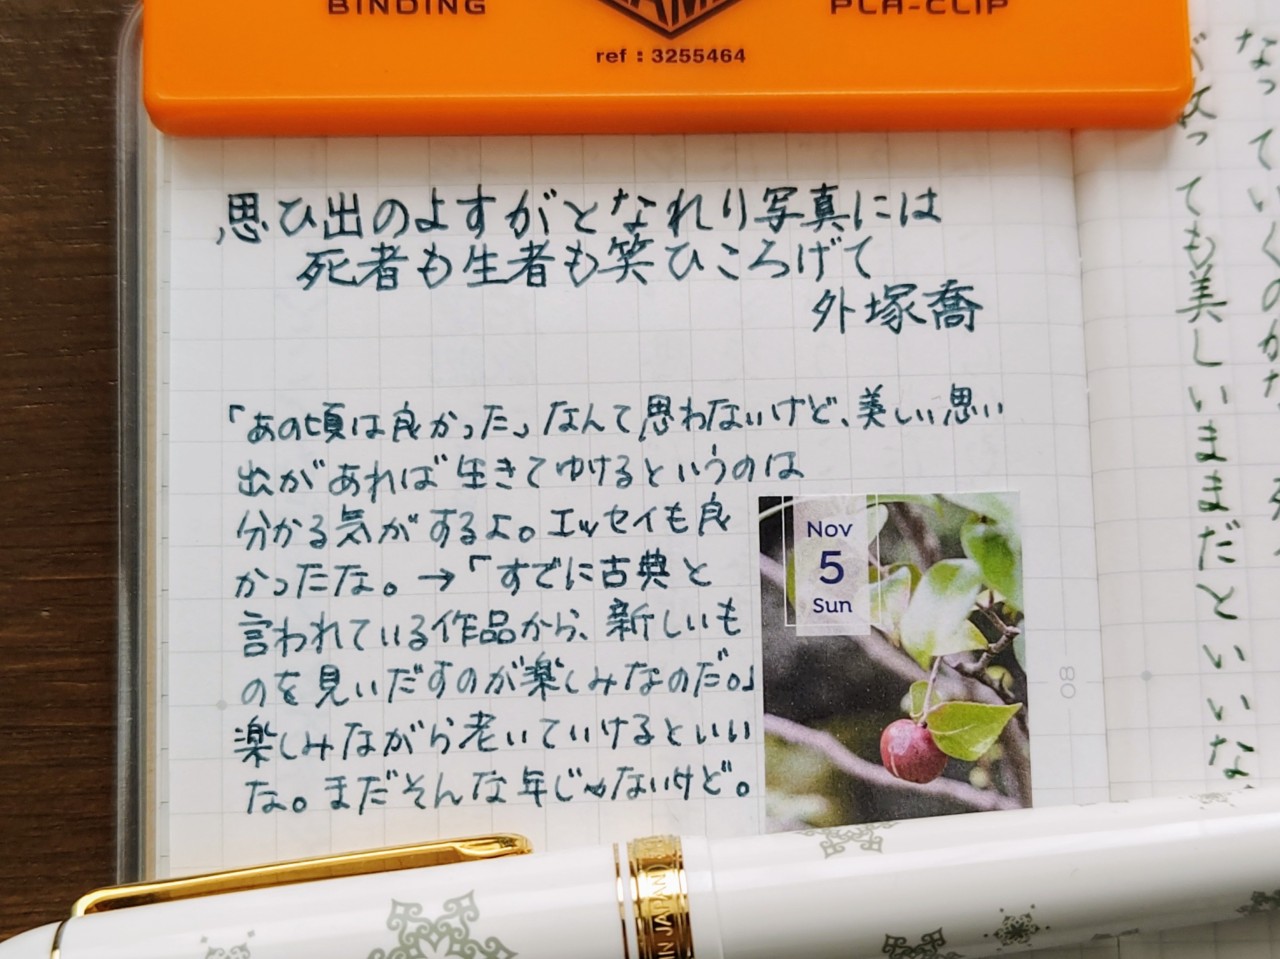 BINDING
PLA-CLIP
ref : 3255464
思ひ出のよすがとなれり写真には
死者も生者も笑ひころげて
外塚喬
「あの頃は良かった」なんて思わないけど、美しい思い
出があれば生きてゆけるというのは
分かる気がするよ。エッセイも良
かったな。→「すでに古典と
言われている作品から、新しいも
のを見いだすのが楽しみなのだ。」
楽しみながら老いていけるといい
な。まだそんな年じゃないけど。
Nov
5
Sun
08
なっていくのか
ても美しいままだといいな
IN JAPAN